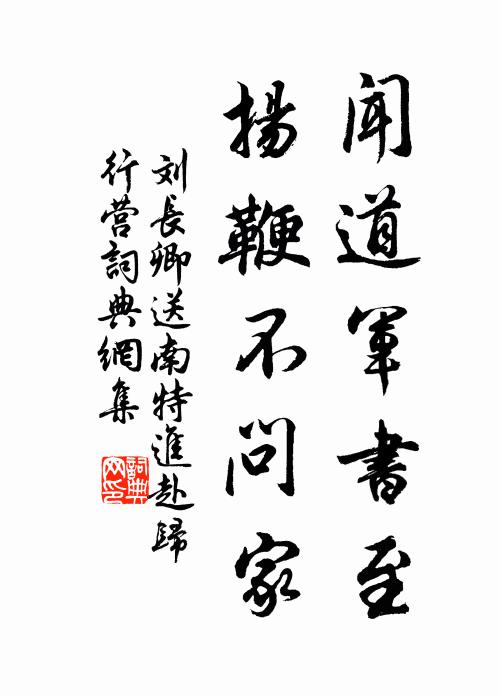 聞道軍書至
揚鞭不問家
刘長卿送南特進赴歸
行营詞典網集
詞典
网印